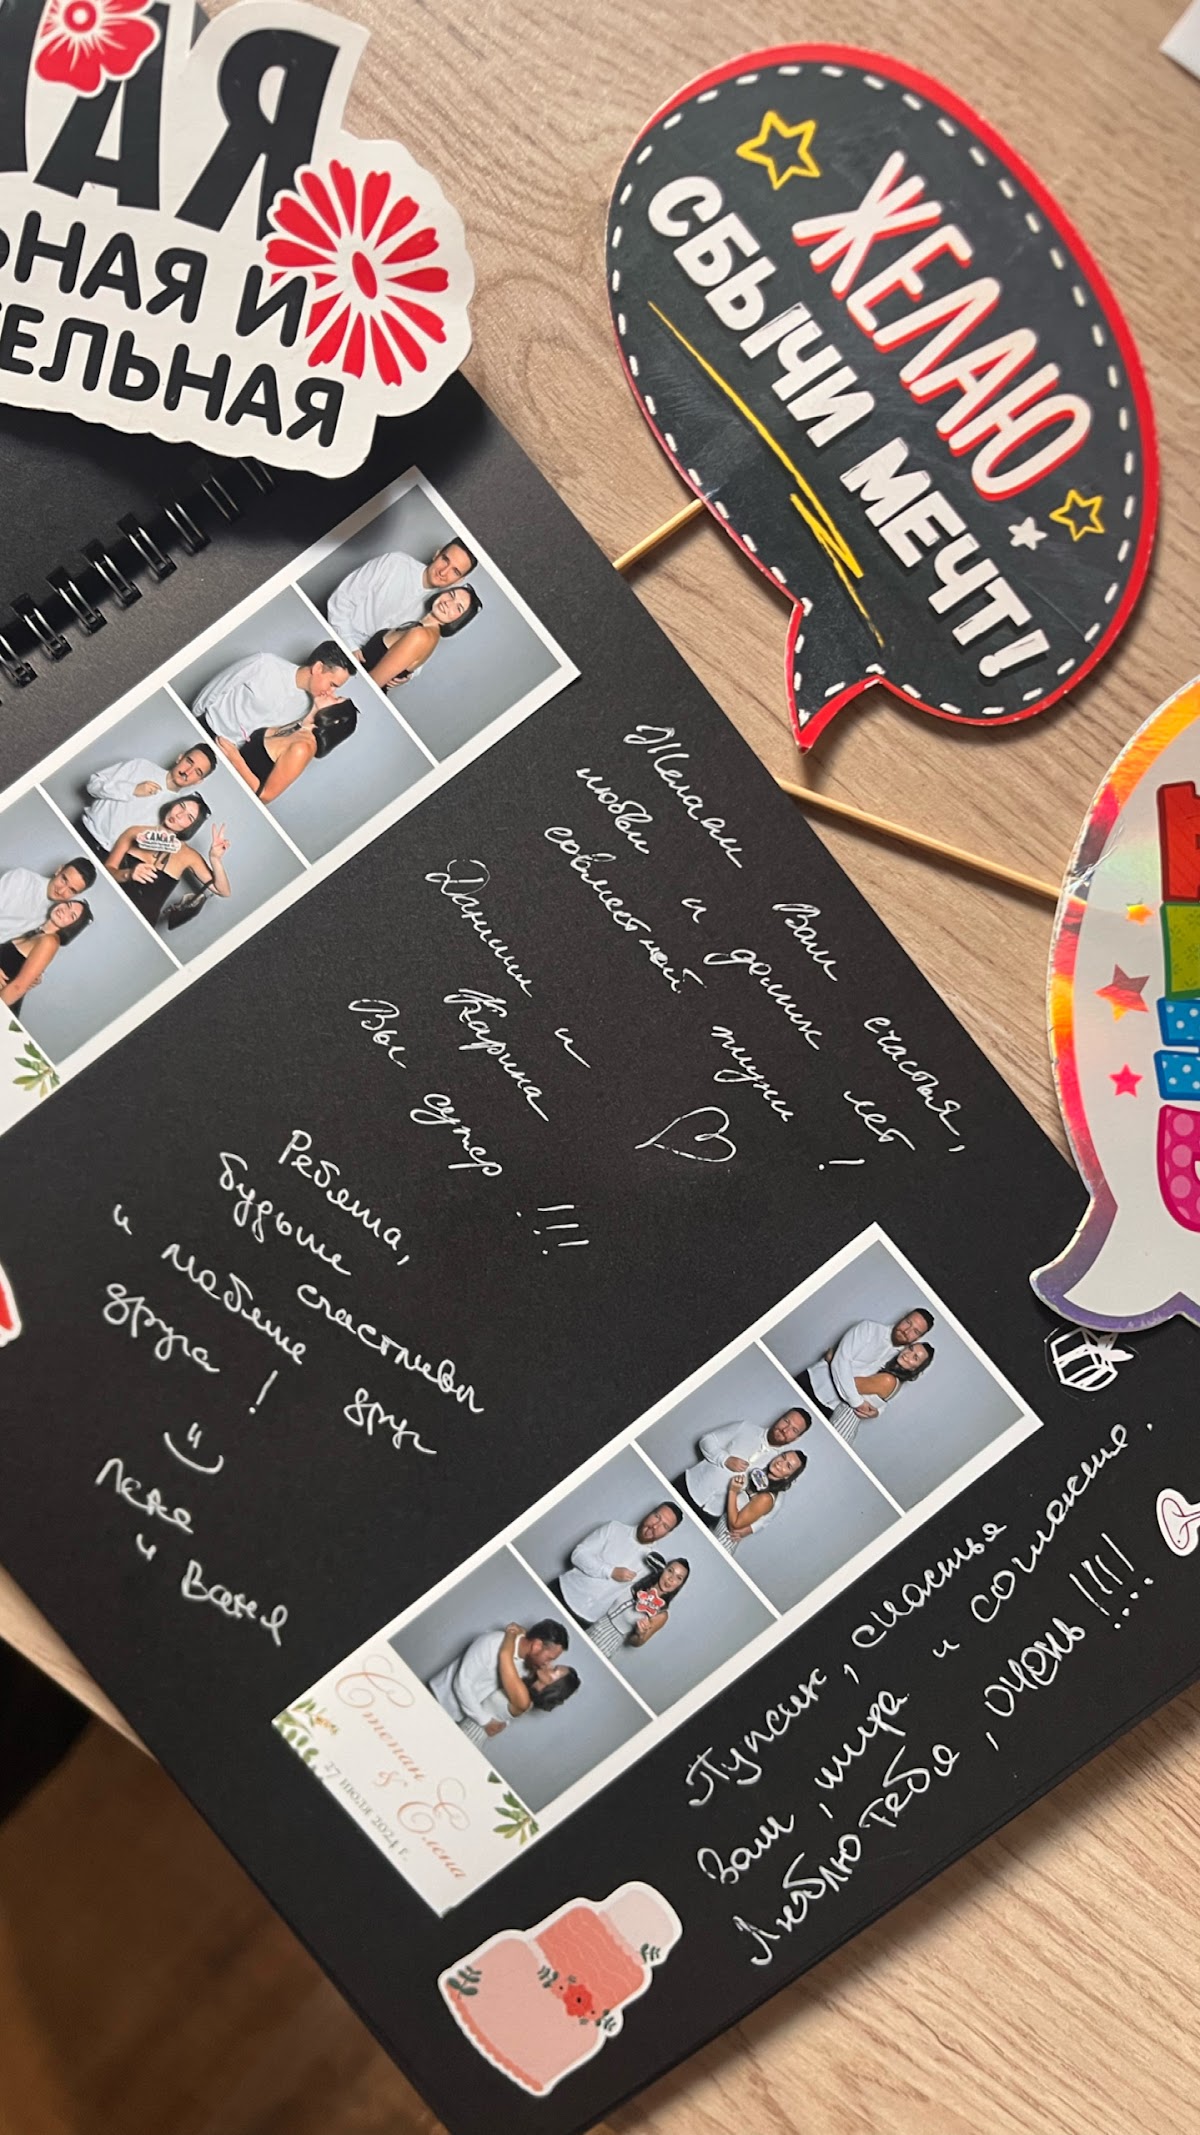 АЯ
ЬНАЯ И
ТЕЛЬНАЯ
ЖЕЛАЮ
СБЫЧИ МЕЧТ!
САМАЯ
Желаем Вам счастья,
любви и долгих лет
совместной жизни!
Даниил и
Карина
Вы супер!!!
Ребята,
будьте счастливы
и любите друг
друга!
Лена
и Ваня
Степан
&
Елена
27 июля 2024 г.
Пупсик, счастья
Вам, мира и согласия.
Люблю тебя, очень!!!!